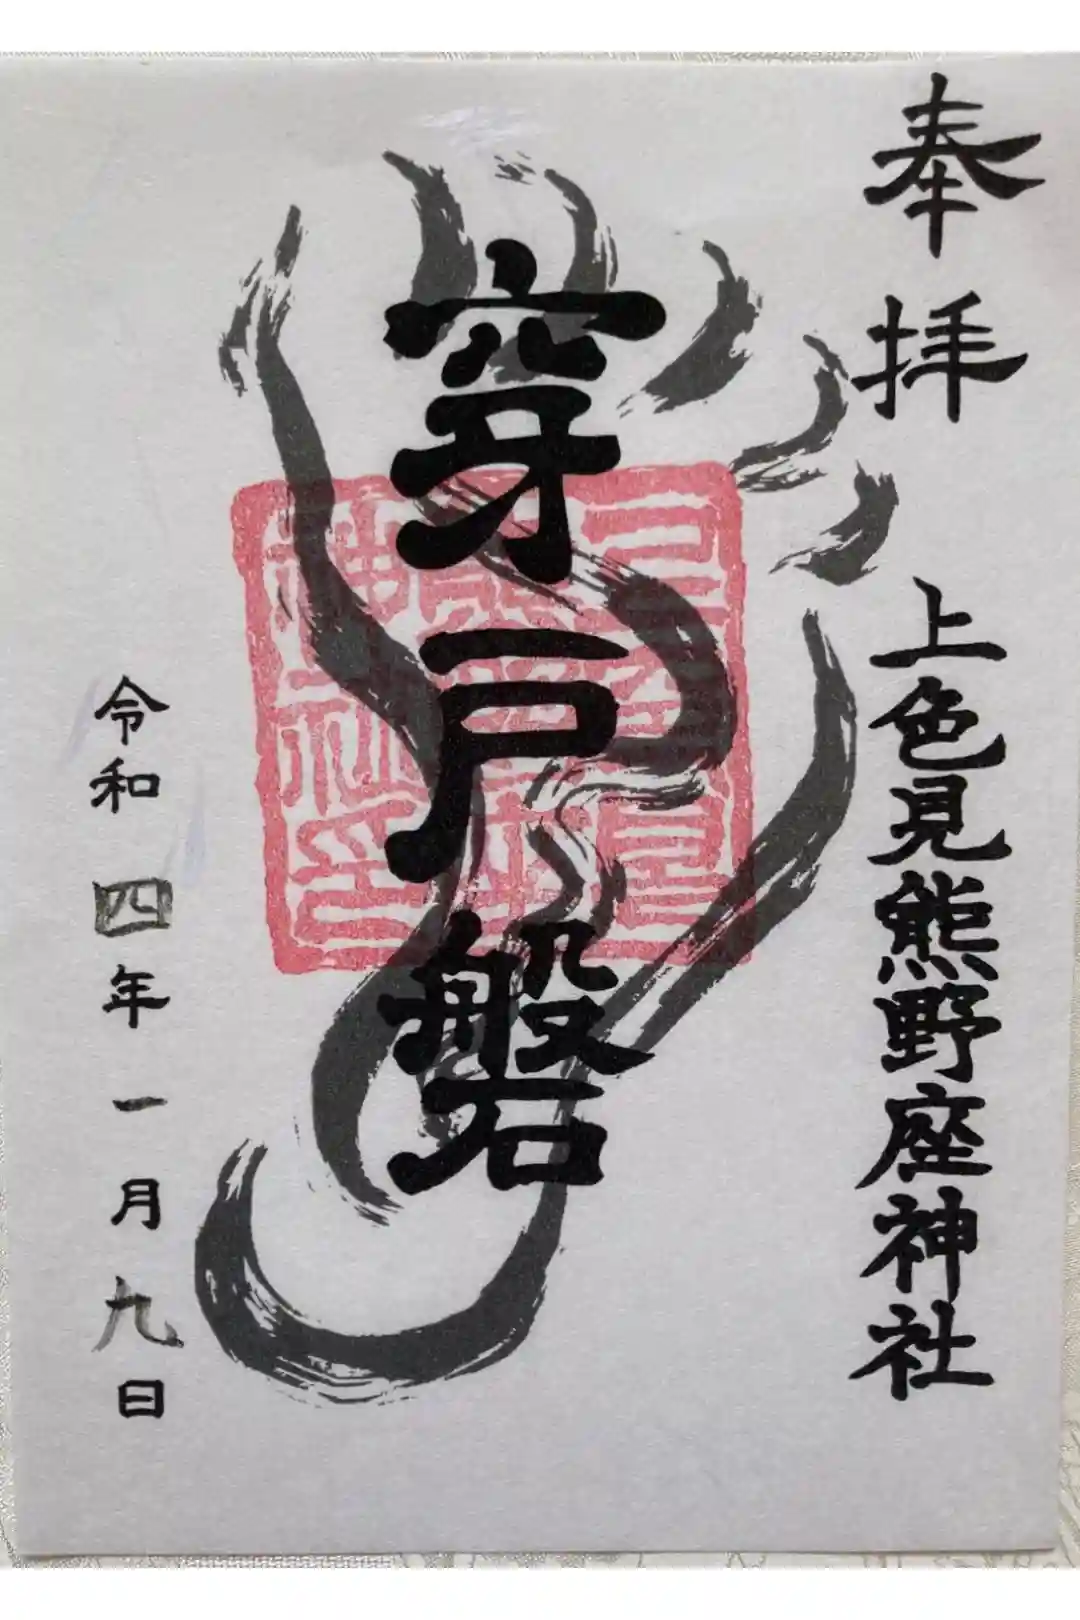 奉拝
上色見熊野座神社
穿戸磐
令和四年一月九日